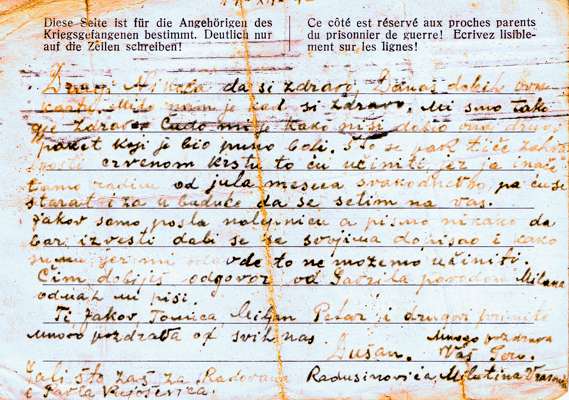 Diese Seite ist für die Angehörigen des
Kriegsgefangenen bestimmt. Deutlich nur
auf die Zeilen schreiben!
Ce côté est réservé aux proches parents
du prisonnier de guerre! Ecrivez lisible-
ment sur les lignes!
Dragi da si zdravo, Danas dobih
kartu. Milo nam je kad si zdravo. Mi smo tako
zdravo čudo mi je kako nisi dobio onaj drugi
paket koji je bio puno bolji. Što se pak tiče
crvenom krstu to ću učiniti, jer ja inače
tamo radim od jula meseca svakodnevno, pa ću se
starati za u buduće da se setim na vas.
Jakov samo posla nalepnicu a pismo nikako da
bar izvesti dali se sa svojima dopisao i kako
jer mi odavde to ne možemo učiniti.
Čim dobiješ odgovor od Gavrila povodom Milana
odmah mi piši.
Ti Jakov Tomica Milan Petar i drugovi primite
mnogo pozdrava od svih nas.
Mnogo pozdrava
Dušan. Vaš Pero.
Dali što znaš za Radovana Radusinovića, Milutina
i Pavla